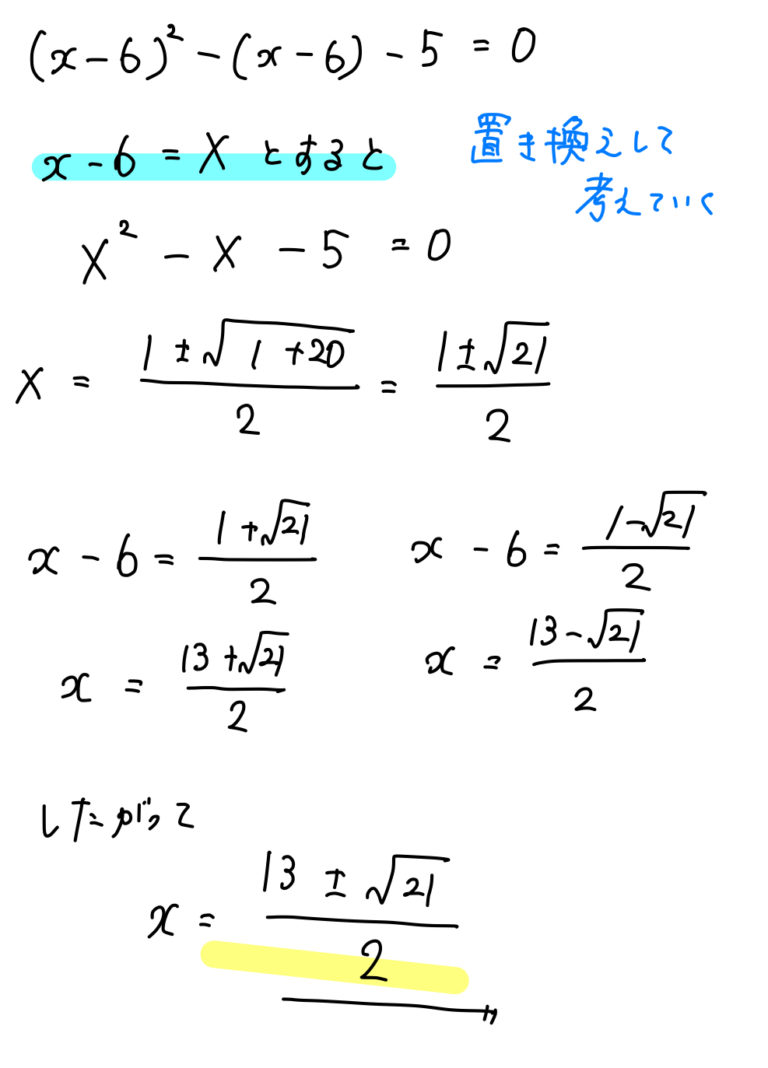 (x-6)² - (x-6) - 5 = 0
x-6 = X とすると
置き換えして
考えていく
X² - X - 5 = 0
X = (1±√(1+20))/2 = (1±√21)/2
x-6 = (1+√21)/2
x-6 = (1-√21)/2
x = (13+√21)/2
x = (13-√21)/2
したがって
x = (13±√21)/2